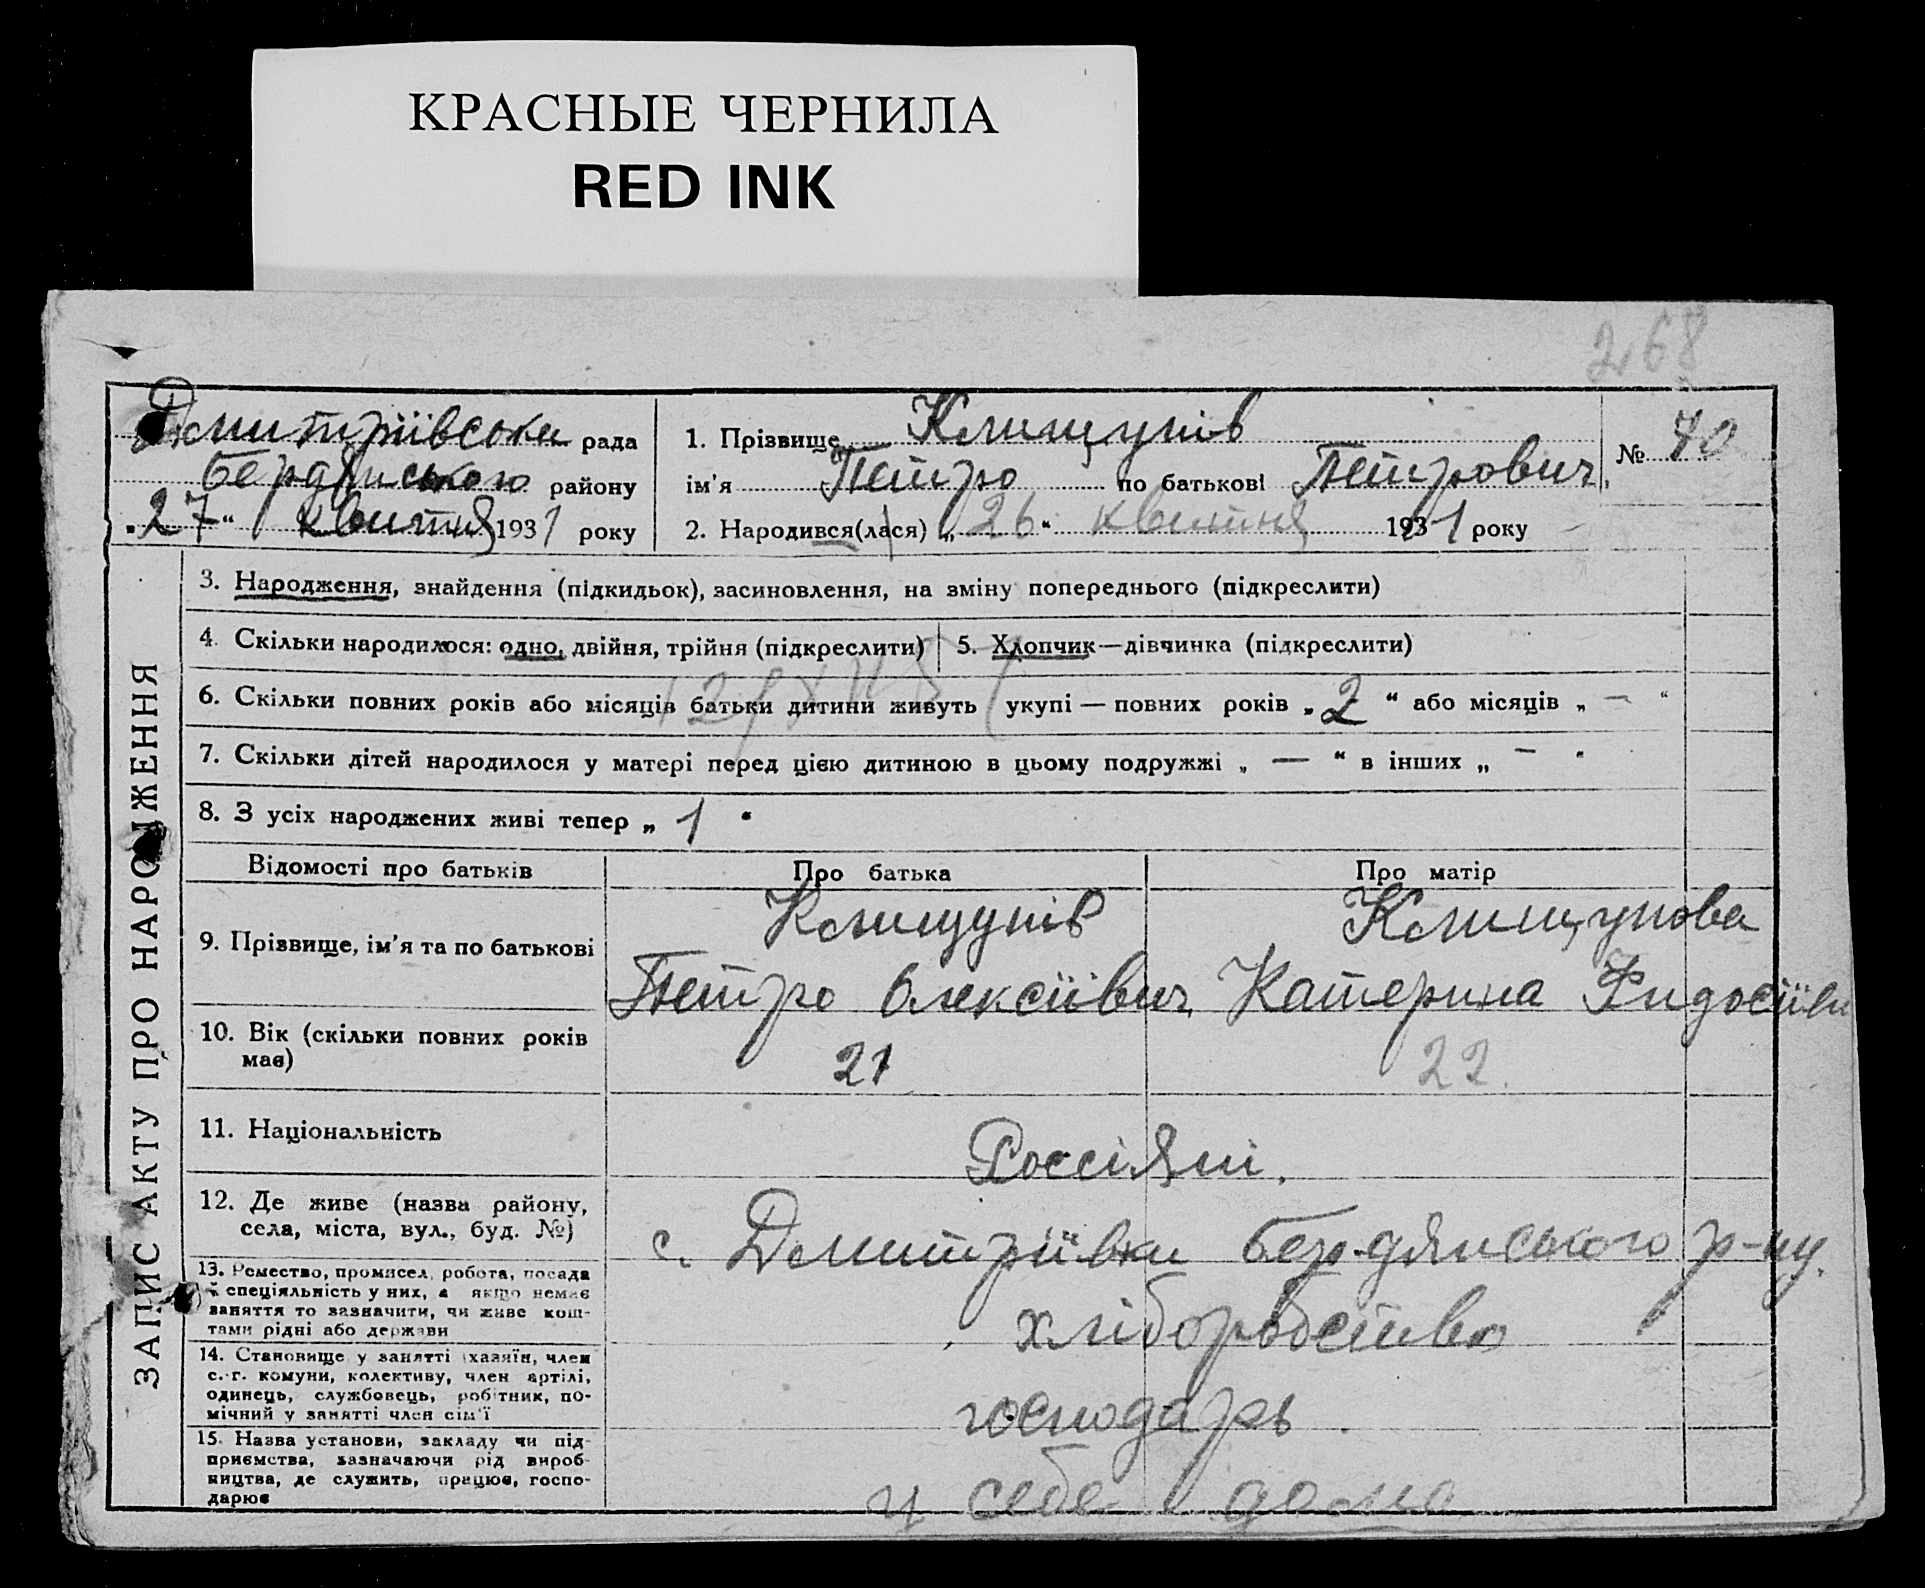 КРАСНЫЕ ЧЕРНИЛА
RED INK
268
Дмитріївська рада
Бердянського району
„27“ квітня 1931 року
1. Прізвище Клищунів
ім'я Петро по батькові Петрович
2. Народився(лася) „26“ квітня 1931 року
№ 70
ЗАПИС АКТУ ПРО НАРОДЖЕННЯ
3. Народження, знайдення (підкидьок), засиновлення, на зміну попереднього (підкреслити)
4. Скільки народилося: одно, двійня, трійня (підкреслити)
5. Хлопчик—дівчинка (підкреслити)
6. Скільки повних років або місяців батьки дитини живуть укупі — повних років „2“ або місяців „—“
7. Скільки дітей народилося у матері перед цією дитиною в цьому подружжі „—“ в інших „—“
8. З усіх народжених живі тепер „1“
Відомості про батьків Про батька Про матір
9. Прізвище, ім'я та по батькові
Клищунів Клищунова
Петро Олексіївич Катерина Фидосіївн
10. Вік (скільки повних років має)
21 22.
11. Національність
Россіяні.
12. Де живе (назва району,
села, міста, вул., буд. №)
с. Дмитріївки Бердянського р-ну.
13. Ремество, промисел, робота, посада
й спеціяльність у них, а якщо немає
заняття то зазначити, чи живе кош-
тами рідні або держави
хліборобство
14. Становище у занятті (хазяїн, член
с.-г. комуни, колективу, член артілі,
одинець, службовець, робітник, по-
мічний у занятті член сім'ї
господарь
15. Назва установи, закладу чи під-
приємства, зазначаючи рід вироб-
ництва, де служить, працює, госпо-
дарює
у себе дома